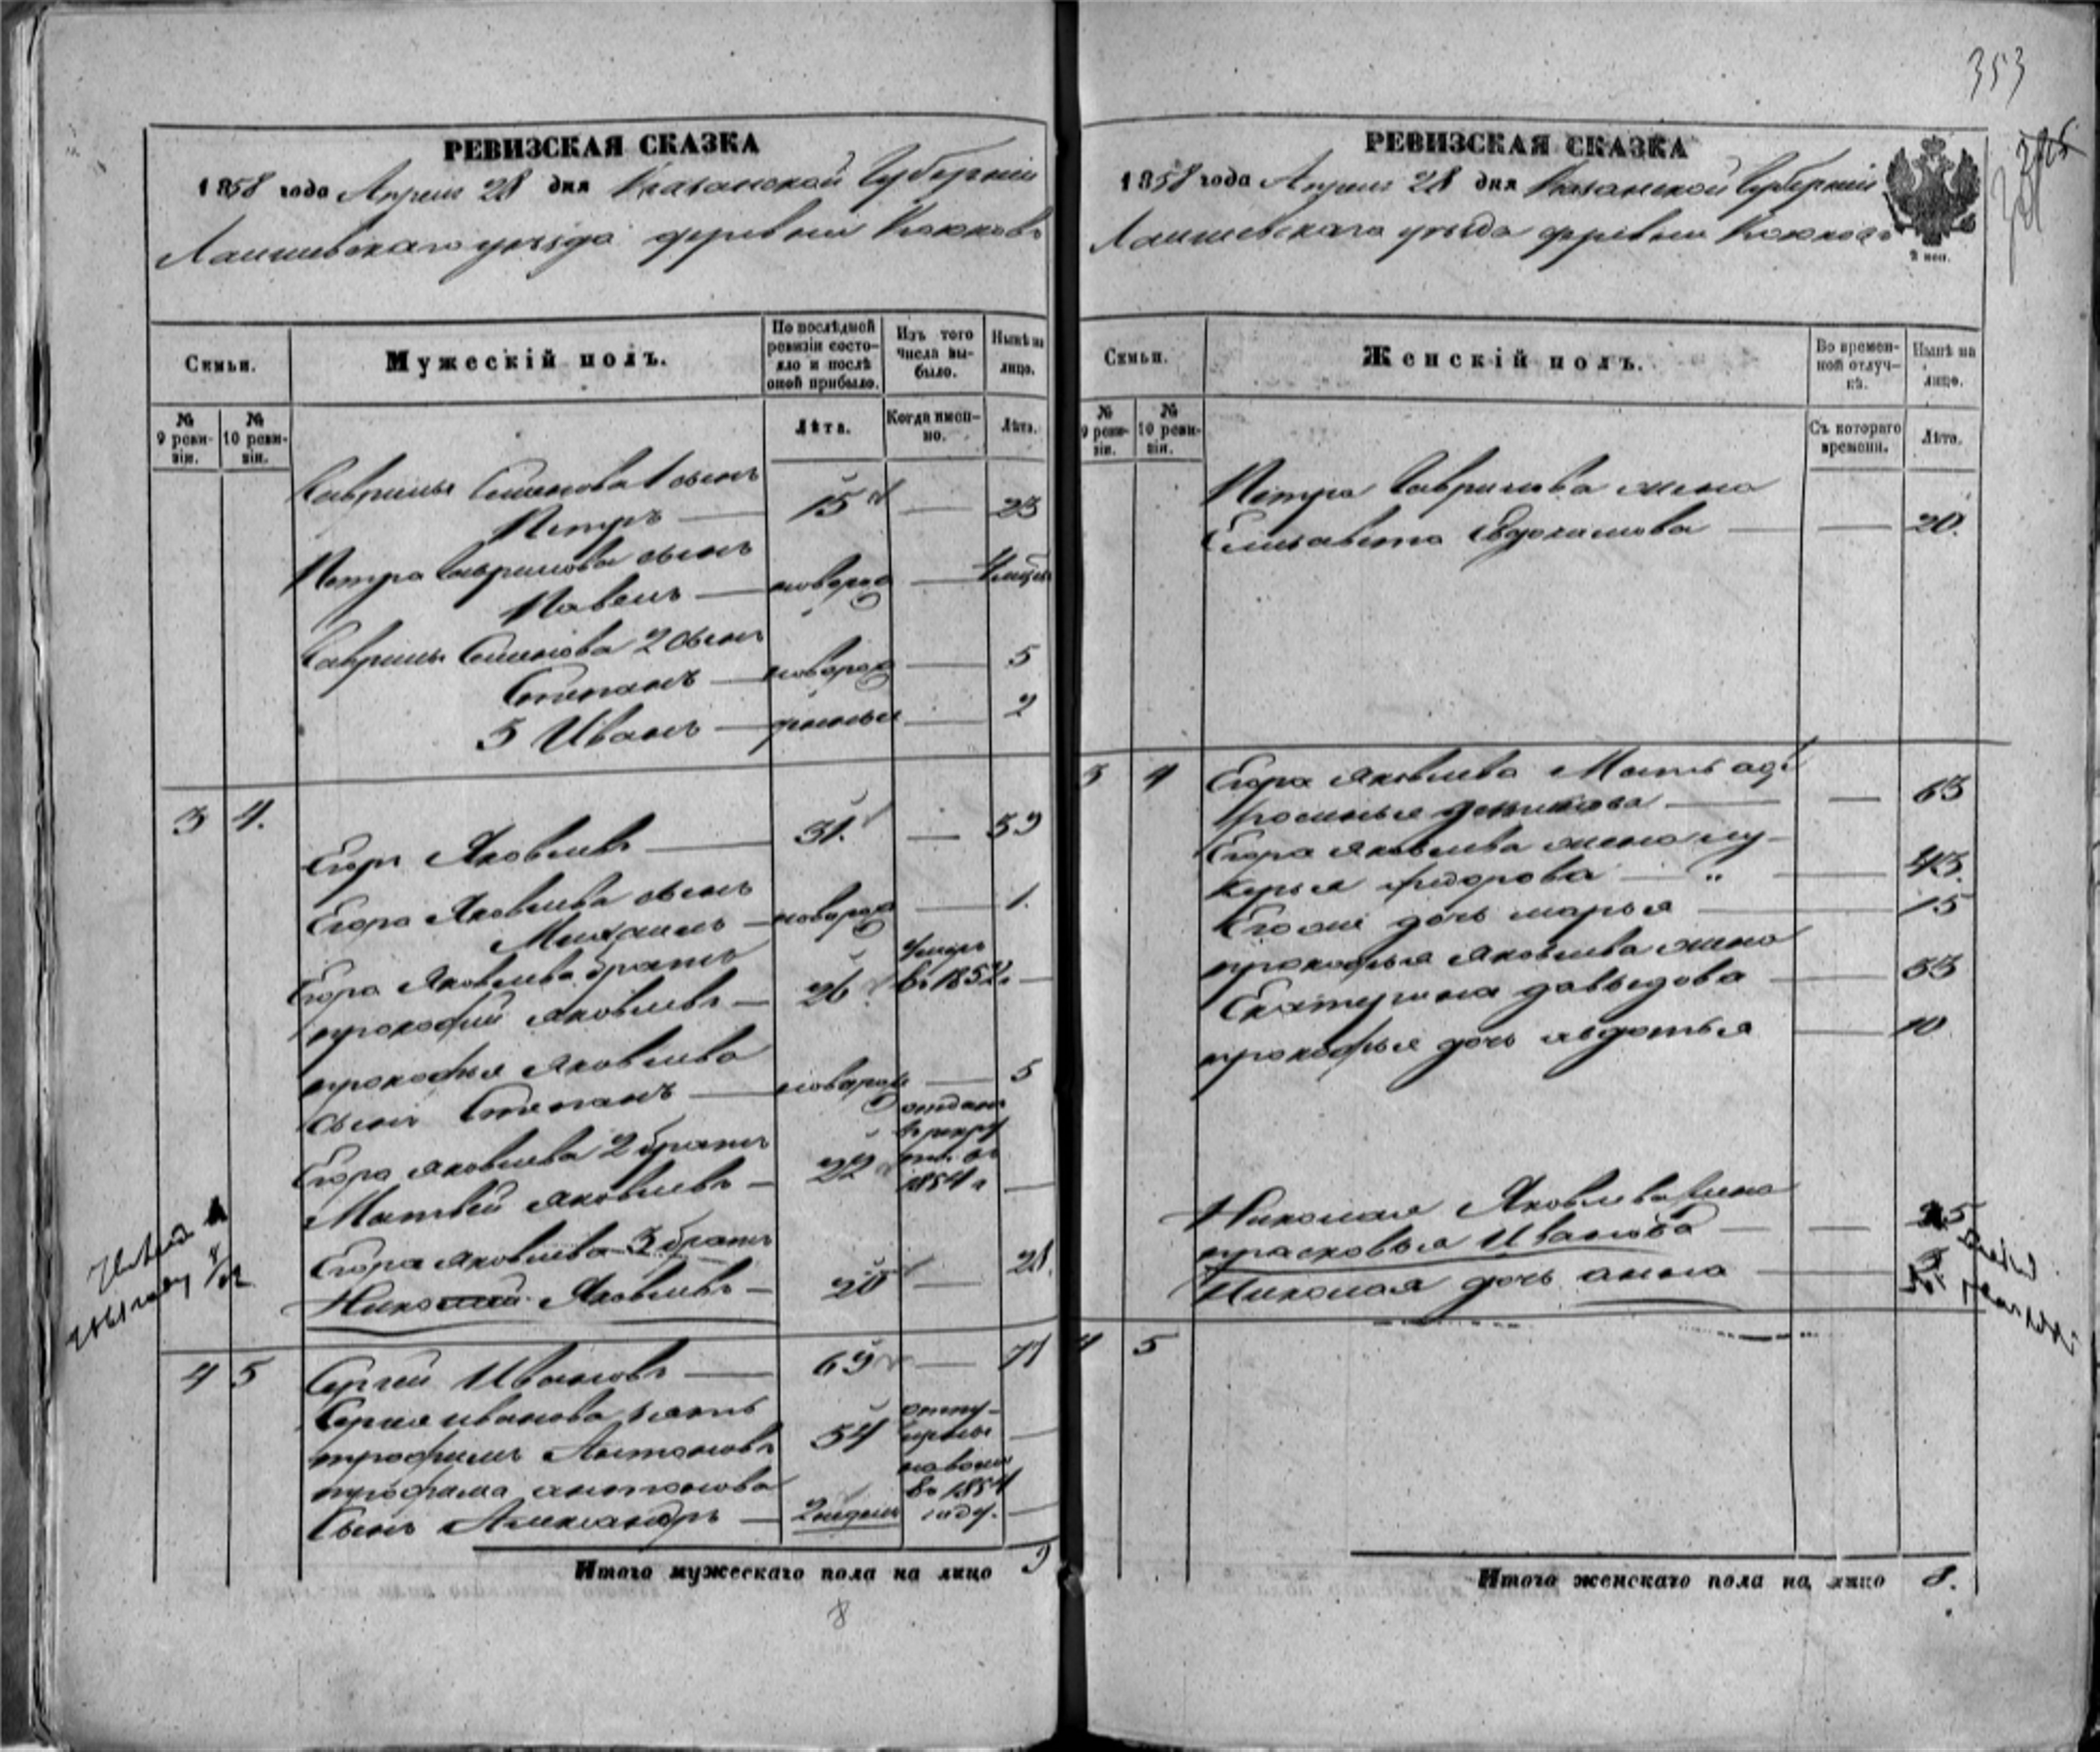 353
РЕВИЗСКАЯ СКАЗКА
1858 года Апреля 28 дня Казанской Губернии
Лаишевскаго уезда деревни
Семьи.
Мужескій полъ.
По послѣдней ревизіи состояло и послѣ оной прибыло.
Изъ того числа выбыло.
Нынѣ на лицо.
№ 9 ревизіи.
№ 10 ревизіи.
Лѣта.
Когда именно.
Лѣта.
Гаврилы Семенова 1 сынъ
Петръ 15 23
Петра Гаврилова сынъ
Павелъ новорож
Гаврилы Семенова 2 сынъ
Степанъ новорож 5
3 Иванъ 2
3 4.
Егоръ Яковлевъ 31. 39
Егора Яковлева сынъ
Михаилъ новорож 1.
Егора Яковлева братъ умеръ
прокофий Яковлевъ 26 въ 1852
прокофья Яковлева
сынъ Степанъ новорож 5
Егора Яковлева 2 братъ отданъ
Матвей Яковлевъ 22 1854
Егора Яковлева 3 братъ
Николай Яковлевъ 20 28.
4 5 Сергей Ивановъ 63 71
Сергея иванова зять отпу-
трофимъ Антоновъ 54 щены
трофима антонова на волю въ 1854
Сынъ Александръ 2 недели году.
Итого мужескаго пола на лицо 9
8
РЕВИЗСКАЯ СКАЗКА
1858 года Апреля 28 дня Казанской Губернии
Лаишевскаго уезда деревни
2 коп.
Семьи.
Женскій полъ.
Во временной отлучкѣ.
Нынѣ на лицо.
№ 9 ревизіи.
№ 10 ревизіи.
Съ котораго времени.
Лѣта.
Петра Гаврилова жена
Елизавета 20.
3 4 Егора Яковлева Мать
63
Егора Яковлева жена лу-
керья федорова 43.
Его же дочь марья 15
прокофья Яковлева жена
Екатерина давыдова 33
прокофья дочь авдотья 10
Николая Яковлева жена
прасковья Иванова 25
Николая дочь анна
4 5
Итого женскаго пола на лицо 8.